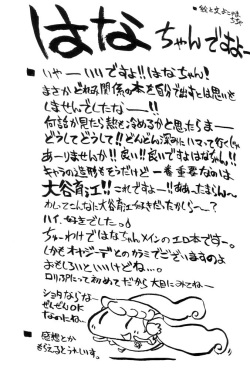 ●絵と文
はなちゃんですよー
■いやーいいですよ!!はなちゃん!
まさかどれみ関係の本を自分で出すとは思いも
しませんでしたなー!!
何話か見たら熱も冷めるかと思たらまー
どうしてどうして!!どんどん深みにハマって行くじゃ
ありませんか!!良い!!良いですよはなちゃん!!
キャラの造形もそうだけど一番重要なのは
大谷育江!!これですよー!!ああ…たまらん〜
わしってこんなに大谷育江好きだったかしら〜?
ハイ、好きでした。
ちゅーわけではなちゃんメインのエロ本です〜。
しかもオヤジーデとのカラミでございますのよ
おもしろいといいけどね…。
ロリコンにって初めてだから大目にみてね
ショタならなー
ぜんぜんOK
なんだけどね。
■感想とか
もらえるとうれしいす。